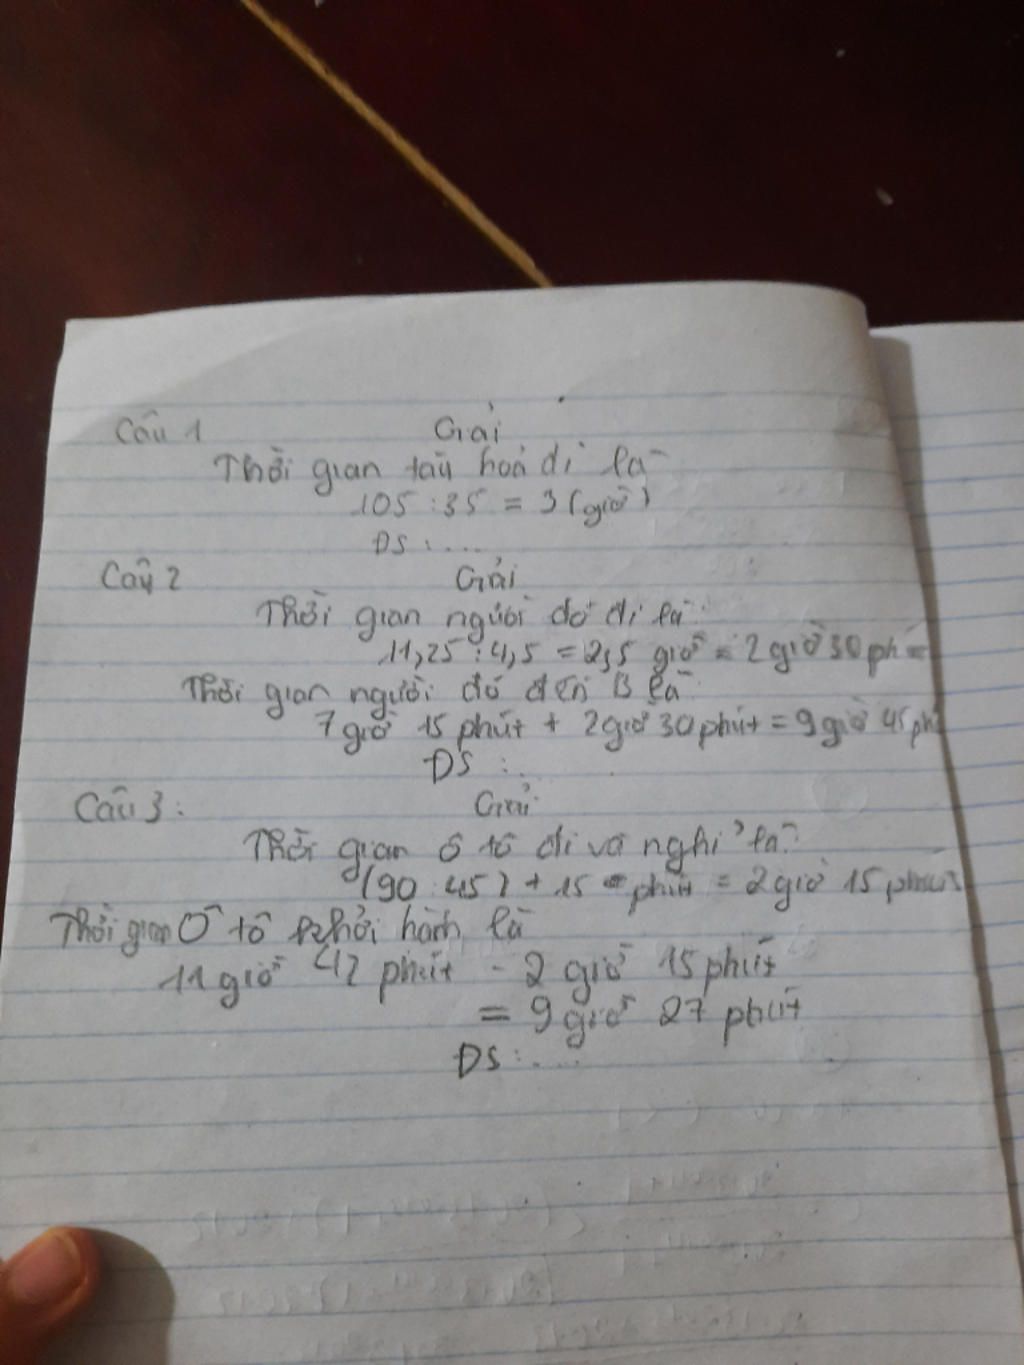 Câu 1 Giải
Thời gian tàu hoả đi là
105 : 35 = 3 (giờ)
ĐS : ....
Câu 2 Giải
Thời gian người đó đi là:
11,25 : 4,5 = 2,5 giờ = 2 giờ 30 ph
Thời gian người đó đến B là
7 giờ 15 phút + 2 giờ 30 phút = 9 giờ 45 ph
ĐS :..
Câu 3 : Giải
Thời gian ô tô đi và nghỉ là:
(90 : 45) + 15 phút = 2 giờ 15 phút
Thời gian Ô tô khởi hành là
11 giờ 42 phút - 2 giờ 15 phút
= 9 giờ 27 phút
ĐS : ....